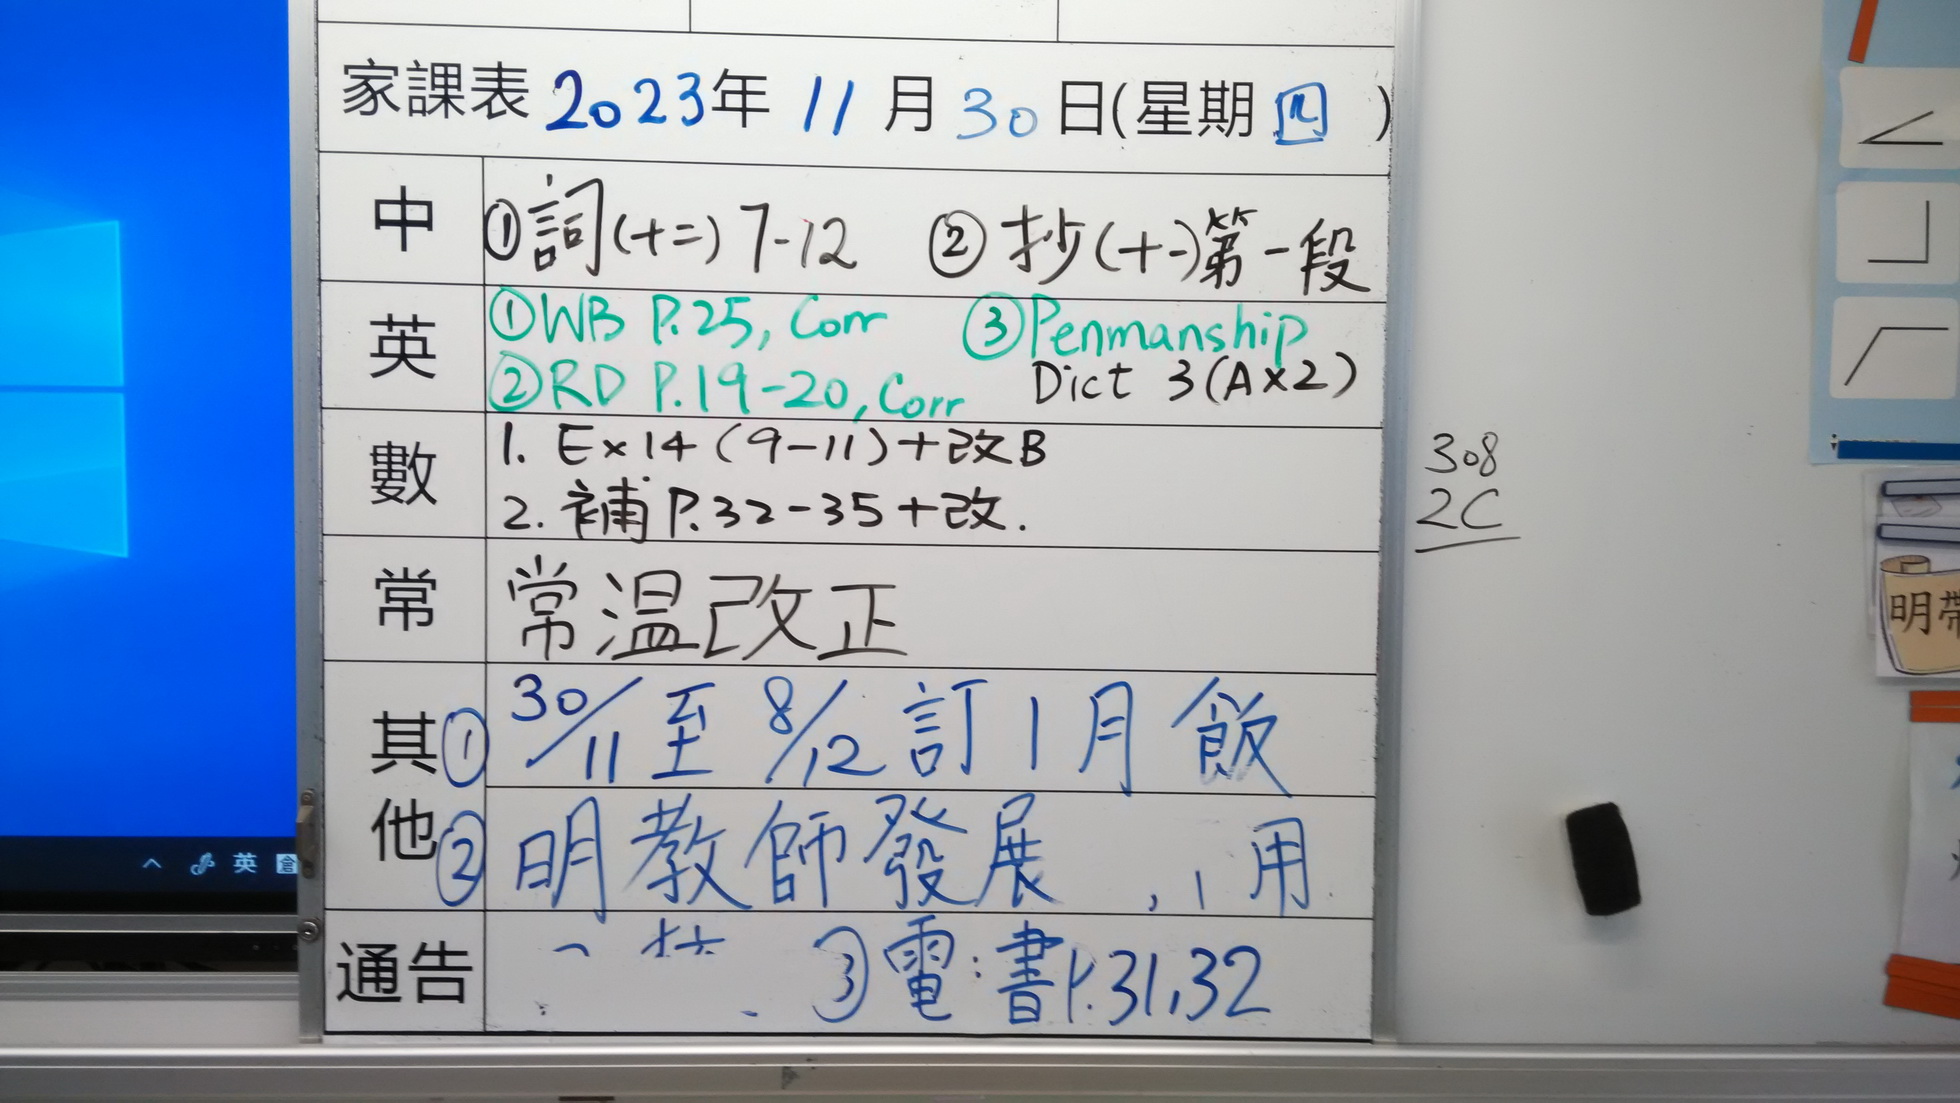 家課表 2023年 11 月 30 日(星期 四 )
中 ①詞(十二) 7-12 ②抄(十一)第一段
英 ①WB P.25, Corr ③Penmanship
②RD P.19-20, Corr Dict 3(A×2)
數 1. Ex 14 (9-11)+改B
2. 補 P.32-35+改.
常 常溫改正
其他 ① 30/11 至 8/12 訂 1 月 飯
② 明教師發展 用
通告 ③電:書P.31,32
308
2C
明帶
英